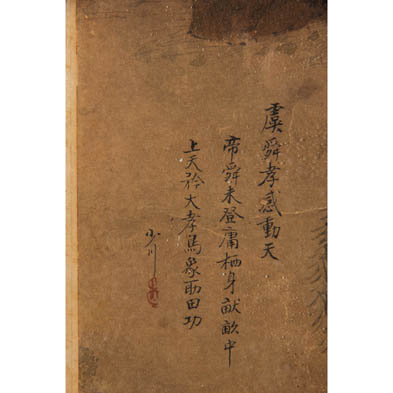 虞舜孝感動天
帝舜未登庸栖身畎畝中
上天矜大孝鳥象助田功
少川